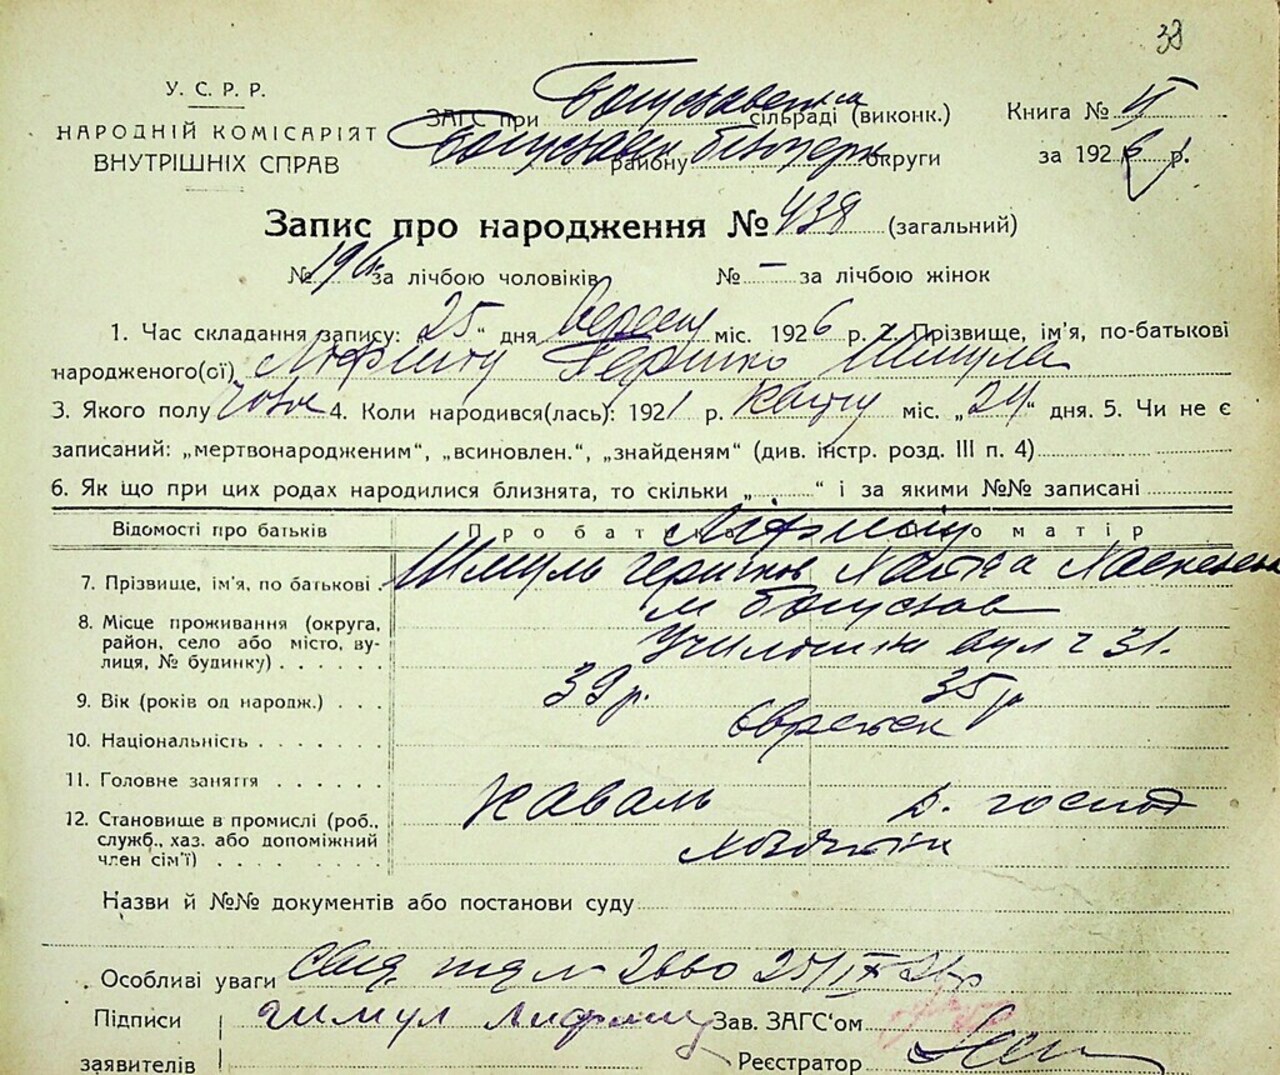 39
У. С. Р. Р.
НАРОДНІЙ КОМІСАРІЯТ
ВНУТРІШНІХ СПРАВ
ЗАГС при Богуславській сільраді (виконк.)
Богуславськ району Білоцерк округи
Книга № II
за 1926 р.
Запис про народження № 438 (загальний)
№ за лічбою чоловіків № — за лічбою жінок
1. Час складання запису: „25“ дня Вересня міс. 1926 р. 2. Прізвище, ім'я, по-батькові
народженого(ої) Гершко Шмуля
3. Якого полу чолов 4. Коли народився(лась): 1921 р. квітня міс. „24“ дня. 5. Чи не є
записаний: „мертвонародженим“, „всиновлен.“, „знайденям“ (див. інстр. розд. III п. 4)
6. Як що при цих родах народилися близнята, то скільки „ “ і за якими №№ записані
Відомості про батьків Про батька Про матір
7. Прізвище, ім'я, по батькові Шмуль Гершков
8. Місце проживання (округа, район, село або місто, вулиця, № будинку) м Богуслав
вул 31.
9. Вік (років од народж.) 39 р. 35 р
10. Національність Єврейск
11. Головне заняття
коваль д. господ
12. Становище в промислі (роб., служб., хаз. або допоміжний член сім'ї)
Назви й №№ документів або постанови суду
Особливі уваги 2660 25/IX 26 р
Підписи
заявителів
Зав. ЗАГС'ом
Реєстратор